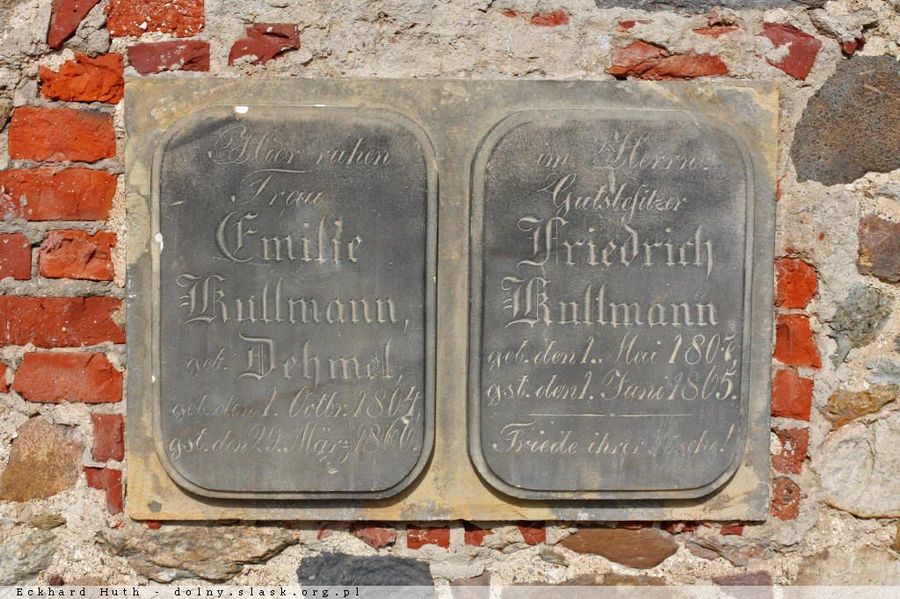 Hier ruhen
Frau
Emilie
Kullmann,
geb. Dehmel,
geb. den 1. Octbr. 1804,
gst. den 29. März 1860.
im Herrn:
Gutsbesitzer
Friedrich
Kullmann
geb. den 1. Mai 1807,
gst. den 1. Juni 1865.
Friede ihrer Asche!
Eckhard Huth - dolny.slask.org.pl